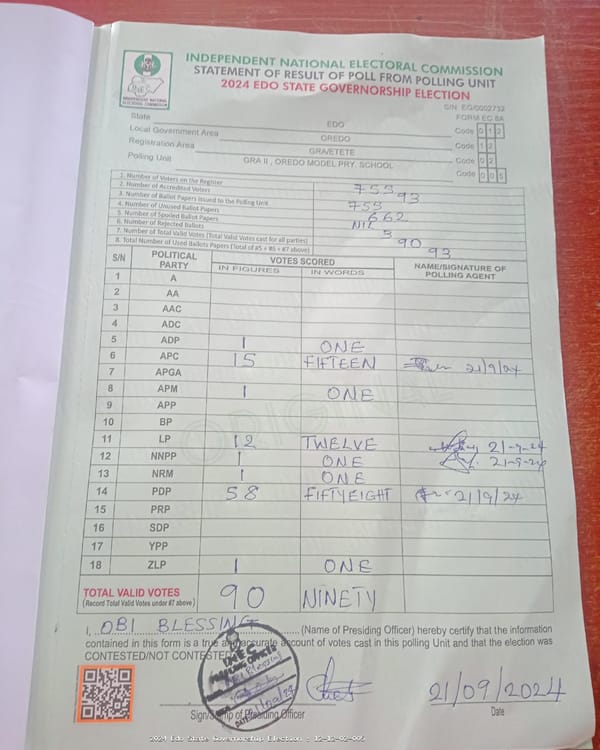 INDEPENDENT NATIONAL ELECTORAL COMMISSION
STATEMENT OF RESULT OF POLL FROM POLLING UNIT
2024 EDO STATE GOVERNORSHIP ELECTION
INEC
INDEPENDENT NATIONAL ELECTORAL COMMISSION
S/N: EG/0002732
FORM EC 8A
State EDO Code 0 1 2
Local Government Area OREDO Code 1 2
Registration Area GRA/ETETE Code 0 2
Polling Unit GRA II , OREDO MODEL PRY. SCHOOL Code 0 0 5
1. Number of Voters on the Register 755
2. Number of Accredited Voters 93
3. Number of Ballot Papers Issued to the Polling Unit 755
4. Number of Unused Ballot Papers 662
5. Number of Spoiled Ballot Papers NIL
6. Number of Rejected Ballots 3
7. Number of Total Valid Votes (Total Valid Votes cast for all parties) 90
8. Total Number of Used Ballots Papers (Total of #5 + #6 + #7 above) 93
S/N POLITICAL PARTY VOTES SCORED NAME/SIGNATURE OF POLLING AGENT
IN FIGURES IN WORDS
1 A
2 AA
3 AAC
4 ADC
5 ADP 1 ONE
6 APC 15 FIFTEEN 21/9/24
7 APGA
8 APM 1 ONE
9 APP
10 BP
11 LP 12 TWELVE 21-9-24
12 NNPP 1 ONE 21-9-24
13 NRM 1 ONE
14 PDP 58 FIFTYEIGHT 21/9/24
15 PRP
16 SDP
17 YPP
18 ZLP 1 ONE
ORIGINAL
TOTAL VALID VOTES 90 NINETY
(Record Total Valid Votes under #7 above)
I, OBI BLESSING (Name of Presiding Officer) hereby certify that the information
contained in this form is a true and accurate account of votes cast in this polling Unit and that the election was
CONTESTED/NOT CONTESTED
21/09/2024
Sign/Stamp of Presiding Officer Date
2024 Edo State Governorship Election : 12-12-02-005